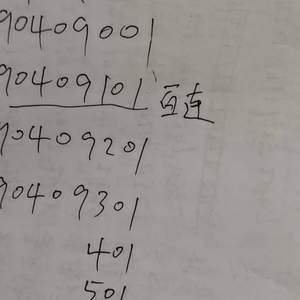 90409001
90409101 互连
90409201
90409301
401
501